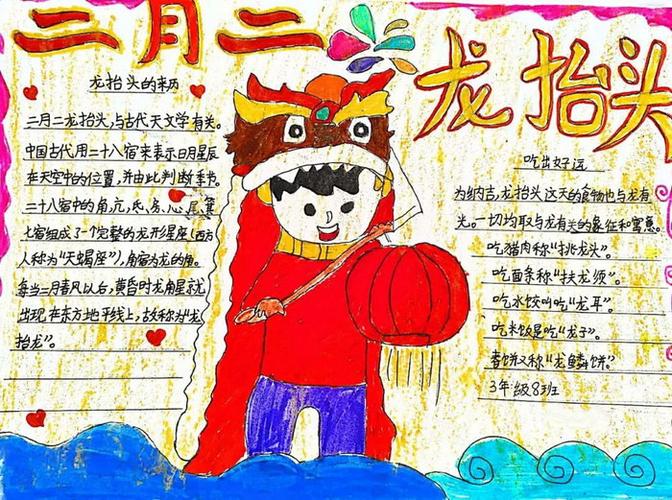 二月二
龙抬头
龙抬头的来历
二月二龙抬头,与古代天文学有关。
中国古代用二十八宿来表示日月星辰
在天空中的位置,并由此判断季节。
二十八宿中的角,亢,氐,房,心,尾,箕
七宿组成了一个完整的龙形星座(西方
人称为"天蝎座"),角宿为龙的角。
每当二月春风以后,黄昏时龙角星就
出现在东方地平线上,故称为"龙
抬龙"。
吃出好运
为纳吉,龙抬头这天的食物也与龙有
关。一切均取与龙有关的象征和寓意。
吃猪肉称"挑龙头"。
吃面条称"扶龙须"。
吃水饺叫吃"龙耳"。
吃米饭是吃"龙子"。
春饼又称"龙鳞饼"。
3年级8班